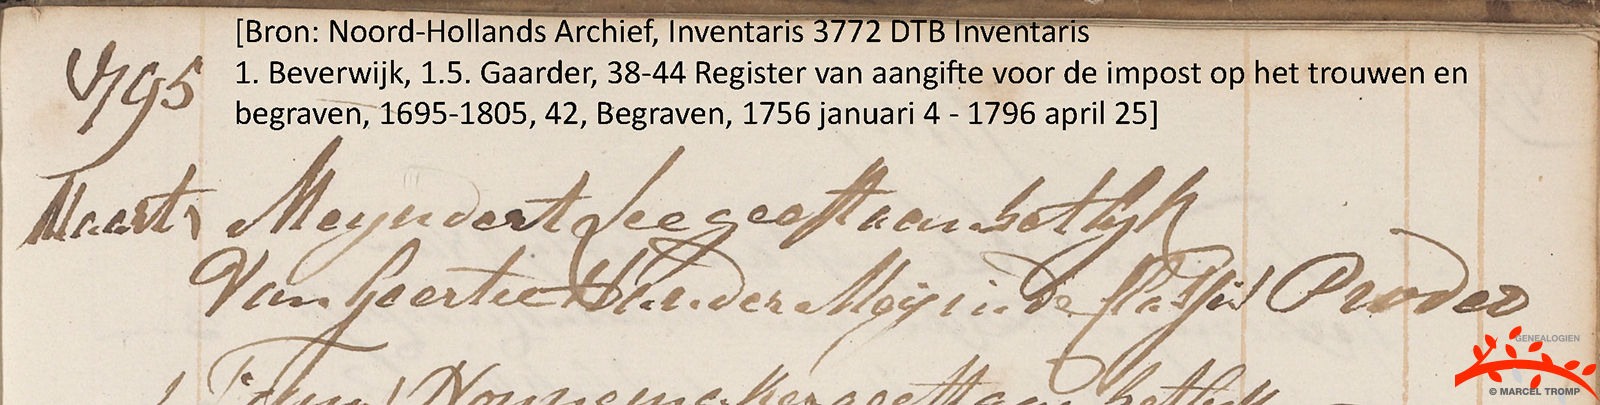 [Bron: Noord-Hollands Archief, Inventaris 3772 DTB Inventaris
1. Beverwijk, 1.5. Gaarder, 38-44 Register van aangifte voor de impost op het trouwen en
begraven, 1695-1805, 42, Begraven, 1756 januari 4 - 1796 april 25]
1795
Maart Meyndert Leegeest aan het lijk
Van Geertie Van der Meij in de Classis Prodeo
geeft aan het lijk
GENEALOGIEN
© MARCEL TROMP